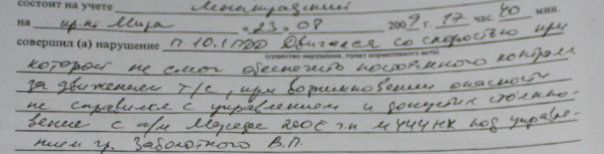 состоит на учете Ленинградский
на пр-кт Мира " 23 " 08 2009 г. 17 час 40 мин.
совершил (а) нарушение П 10.1 ПДД Двигался со скоростью при
(существо нарушения, пункт нормативного акта)
которой не смог обеспечить постоянного контроля
за движением т/с, при возникновении опасности
не справился с управлением и допустил столкно-
вение с а/м Мерседес 200Е г.н М444НК под управле-
нием гр. Заболотного В.П.